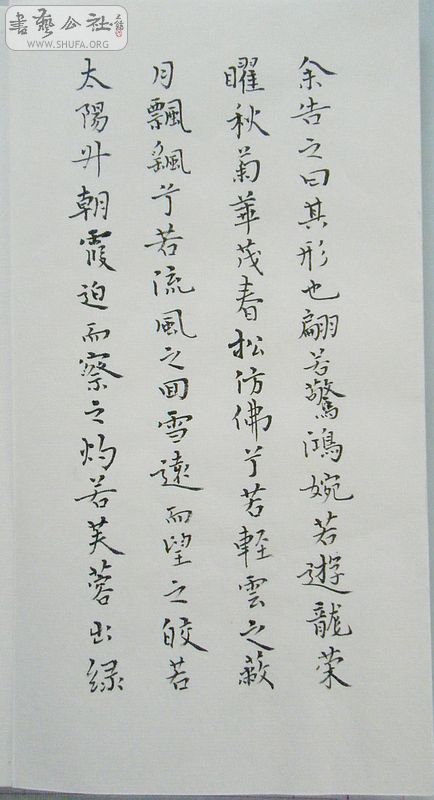 書藝公社
WWW.SHUFA.ORG
余告之曰其形也翩若驚鴻婉若遊龍荣
曜秋菊華茂春松仿佛兮若軽雲之蔽
月飄飖兮若流風之回雪遠而望之皎若
太陽升朝霞迫而察之灼若芙蓉出緑